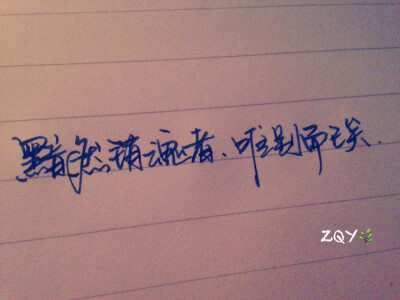 黯然销魂者、唯别而已矣.
ZQY